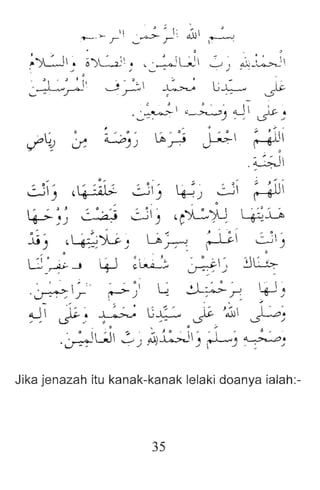 بسم الله الرحمن الرحيم
الحمد لله رب العالمين ، والصلاة والسلام
على سيدنا محمد أشرف المرسلين
وعلى آله وصحبه أجمعين.
اللهم اجعل قبرها روضة من رياض
الجنة.
اللهم أنت ربها، وأنت خلقتها، وأنت
هديتها للإسلام، وأنت قبضت روحها
وأنت أعلم بسرها وعلانيتها، وقد
جئناك راغبين شفعاء لها فـاغفرلنا
ولها برحمتك يا أرحم الراحمين.
وصلى الله على سيدنا محمد وعلى آله
وصحبه وسلم والحمدلله رب العالمين.
Jika jenazah itu kanak-kanak lelaki doanya ialah:-
35